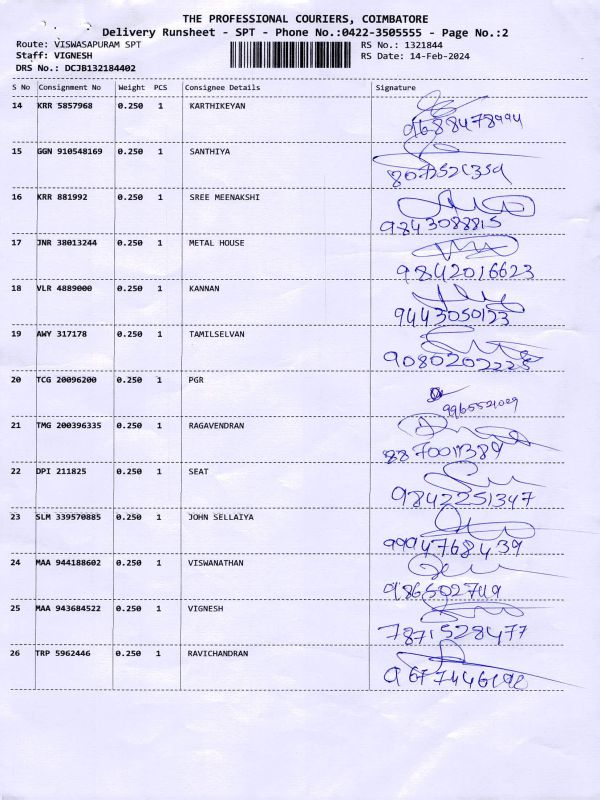 THE PROFESSIONAL COURIERS, COIMBATORE
Delivery Runsheet - SPT - Phone No.:0422-3505555 - Page No.:2
Route: VISWASAPURAM SPT RS No.: 1321844
Staff: VIGNESH RS Date: 14-Feb-2024
DRS No.: DCJB132184402
S No Consignment No Weight PCS Consignee Details Signature
14 KRR 5857968 0.250 1 KARTHIKEYAN
15 GGN 910548169 0.250 1 SANTHIYA
16 KRR 881992 0.250 1 SREE MEENAKSHI
9843088815
17 JNR 38013244 0.250 1 METAL HOUSE
9842016623
18 VLR 4889000 0.250 1 KANNAN
9443050123
19 AWY 317178 0.250 1 TAMILSELVAN
9080202225
20 TCG 20096200 0.250 1 PGR
9965521029
21 TMG 200396335 0.250 1 RAGAVENDRAN
22 DPI 211825 0.250 1 SEAT
9842251347
23 SLM 339570885 0.250 1 JOHN SELLAIYA
9994768439
24 MAA 944188602 0.250 1 VISWANATHAN
986502749
25 MAA 943684522 0.250 1 VIGNESH
7871528477
26 TRP 5962446 0.250 1 RAVICHANDRAN